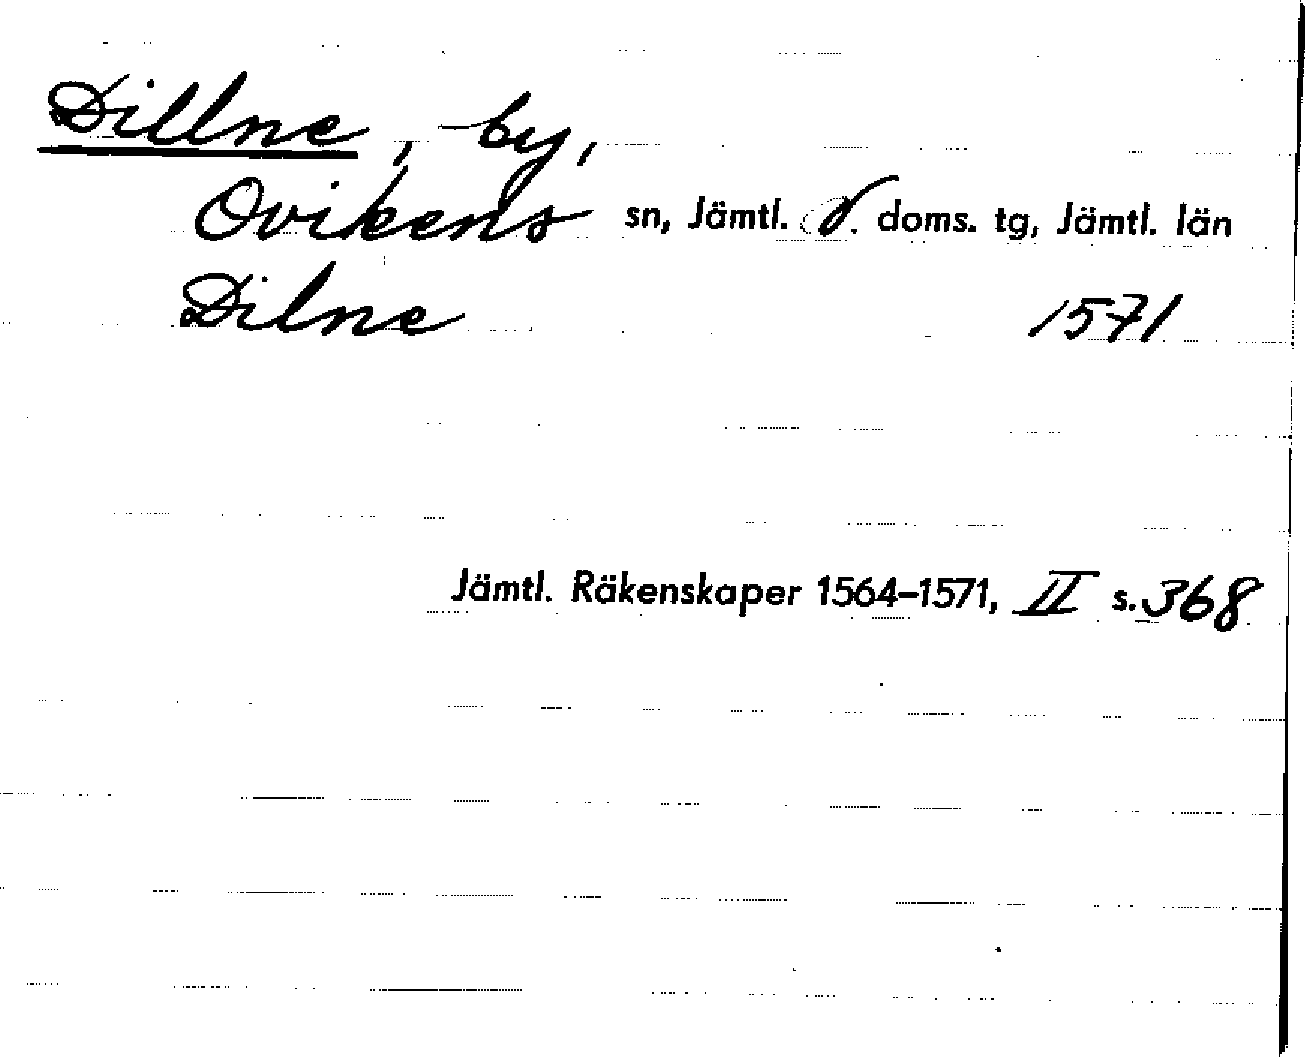 Dillne, by,
Ovikens sn, Jämtl. v. doms. tg, Jämtl. län
Dilne 1571
Jämtl. Räkenskaper 1564–1571, II s. 368